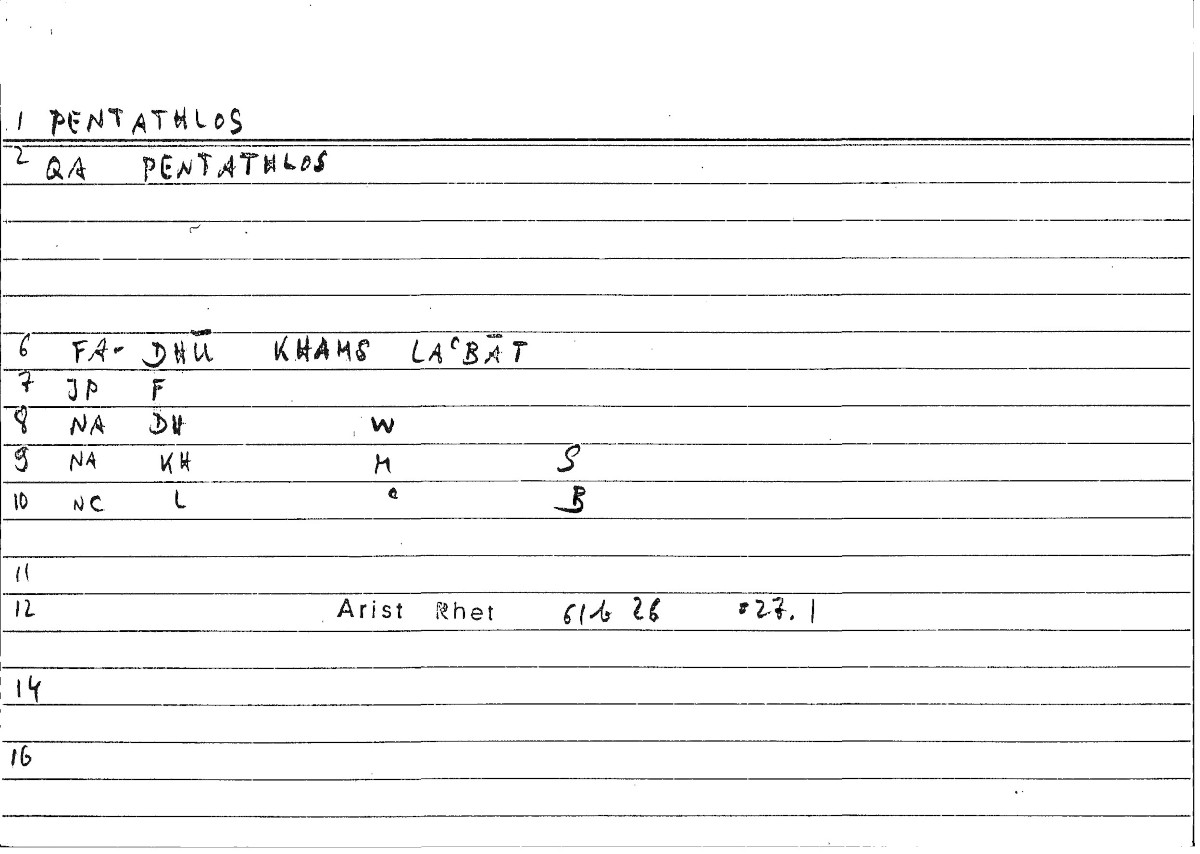 1 PENTATHLOS
2 QA PENTATHLOS
6 FA- DHŪ KHAMS LAʿBĀT
7 JP F
8 NA DH W
9 NA KH M S
10 NC L ʿ B
11
12 Arist Rhet 61b 26 :27.1
14
16